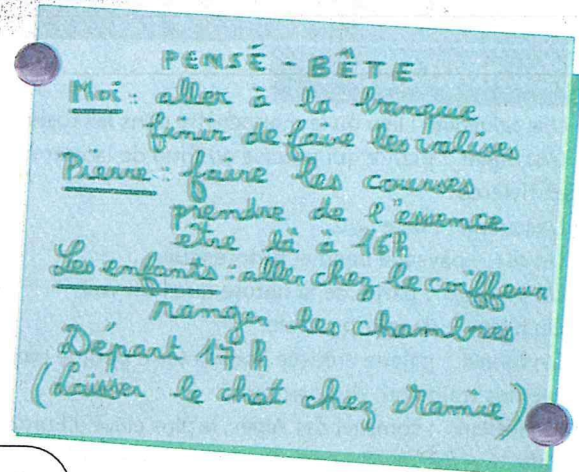 PENSÉ-BÊTE
Moi : aller à la banque
finir de faire les valises
Pierre : faire les courses
prendre de l'essence
être là à 16h
Les enfants : aller chez le coiffeur
ranger les chambres
Départ 17 h
(Laisser le chat chez Mamie)